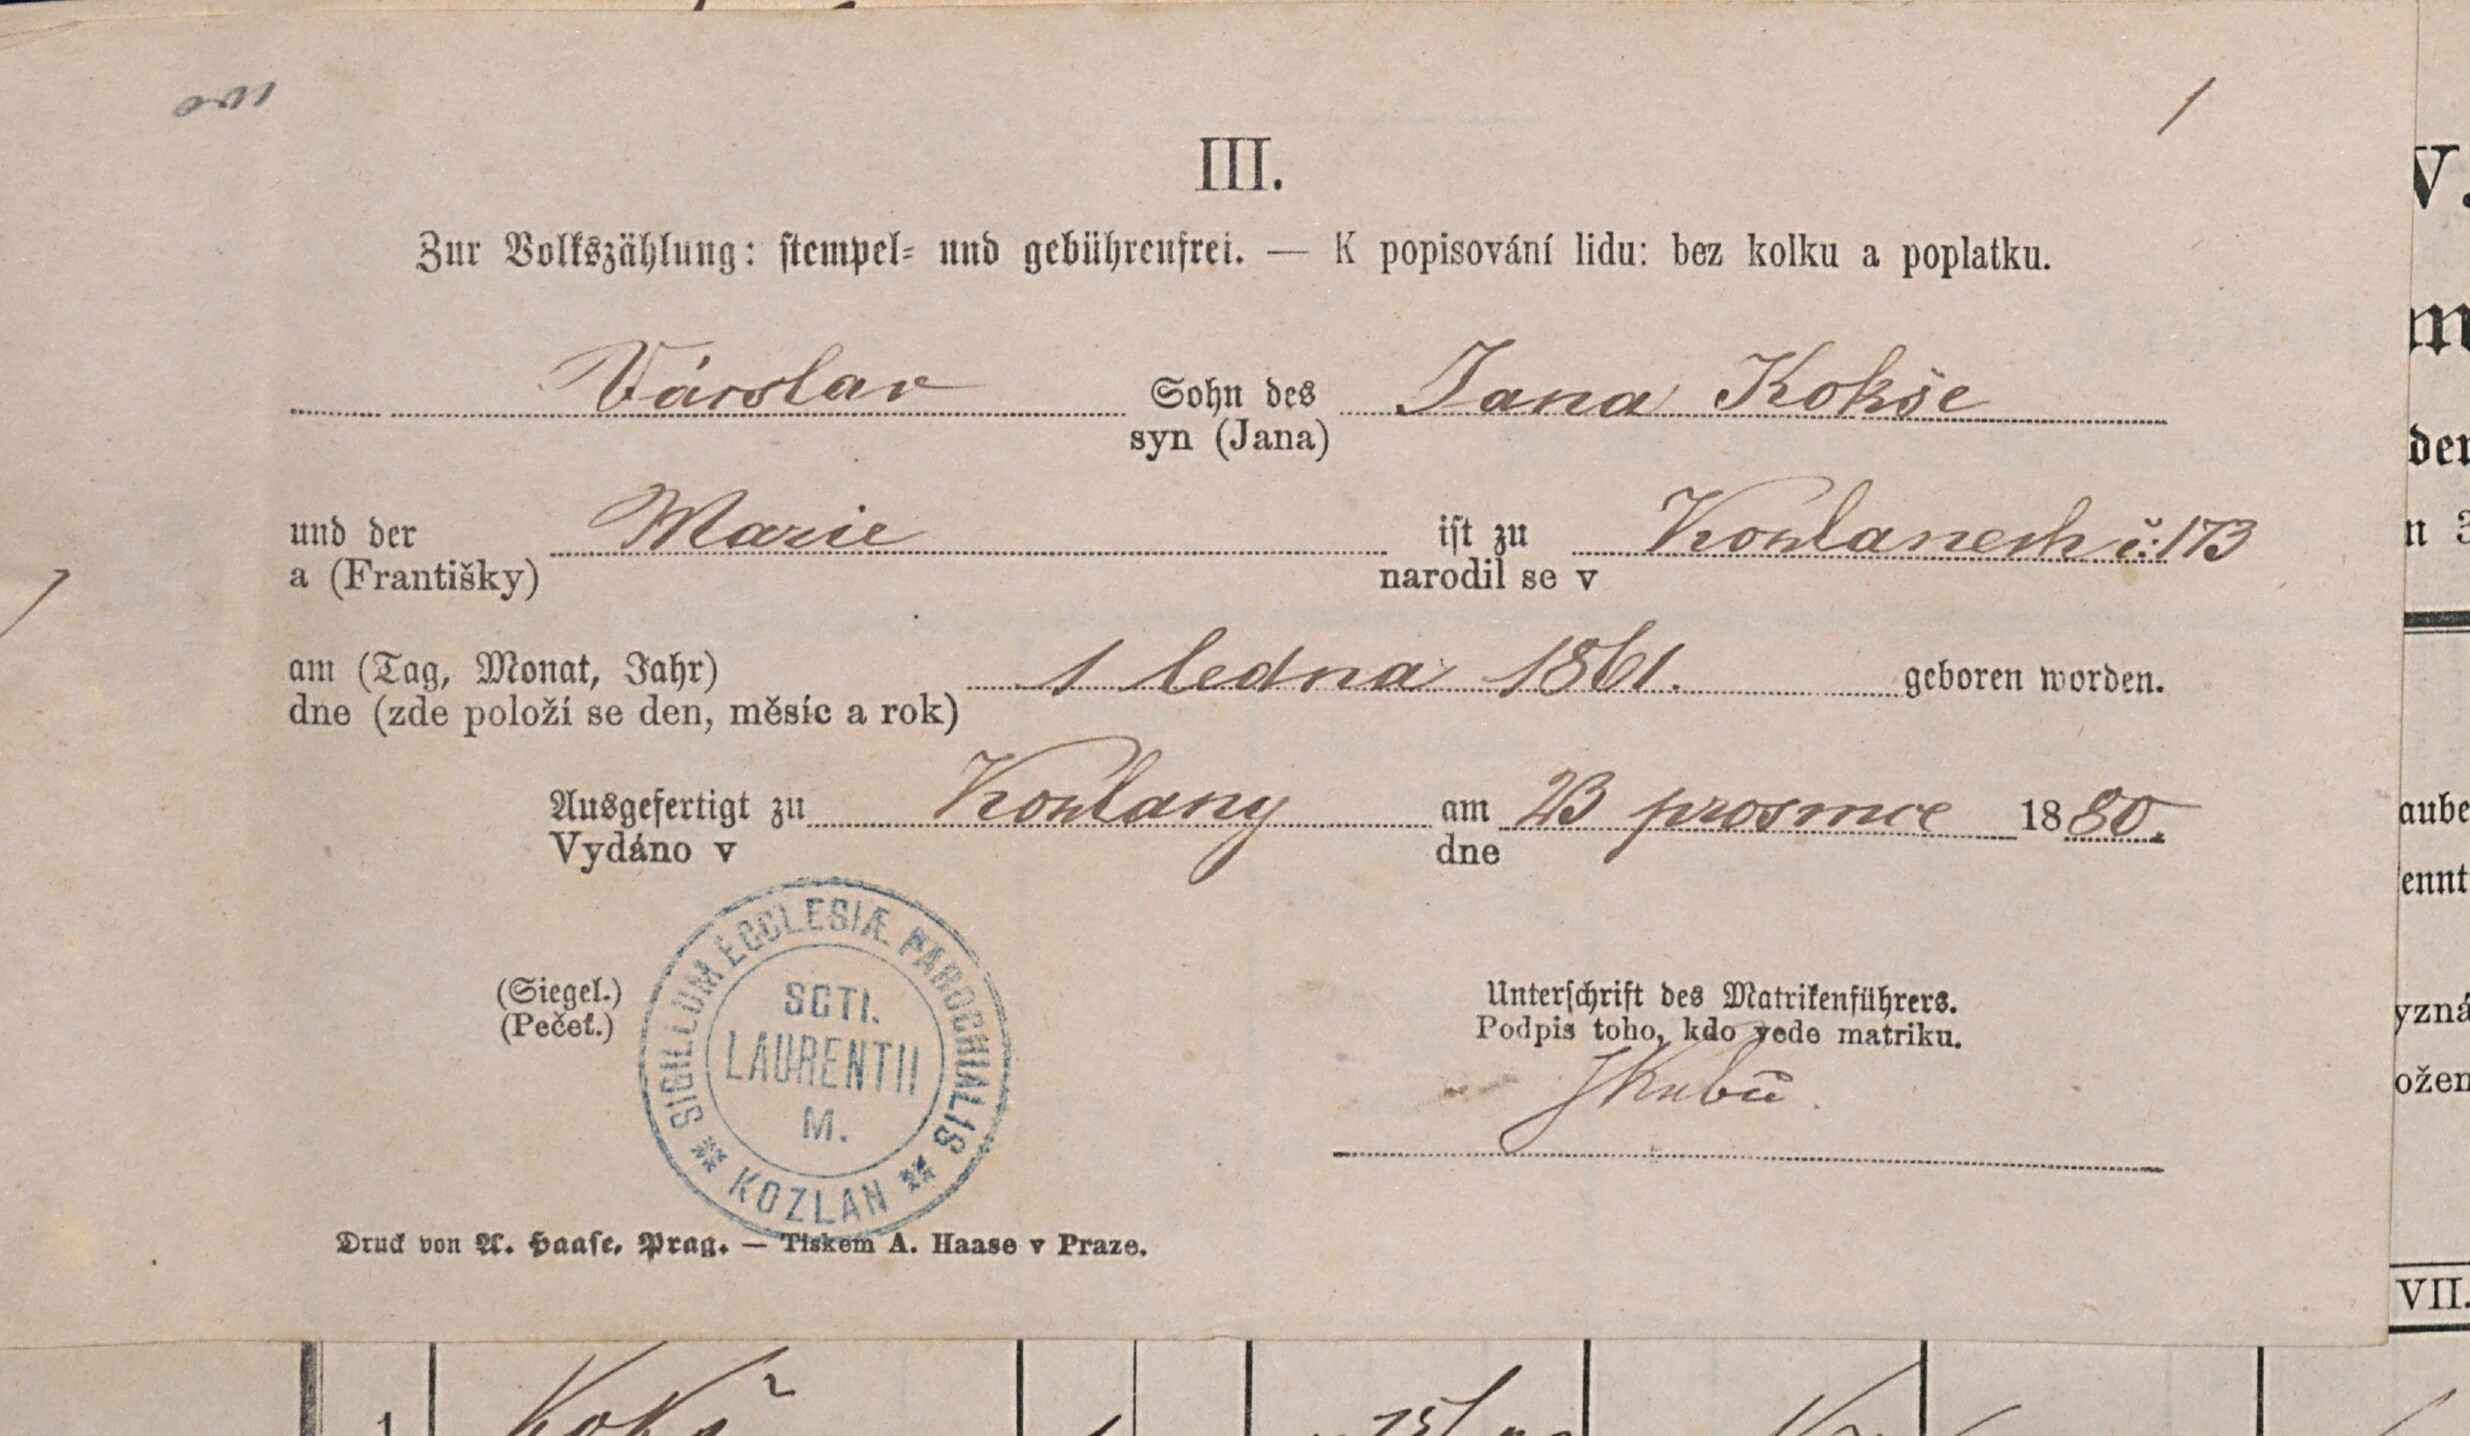 1
III.
Zur Volkszählung: stempel- und gebührenfrei. — K popisování lidu: bez kolku a poplatku.
Václav Sohn des Jana Kokše
syn (Jana)
und der Marie ist zu Kozlanech č. 173
a (Františky) narodil se v
am (Tag, Monat, Jahr) 1 ledna 1861. geboren worden.
dne (zde položí se den, měsíc a rok)
Ausgefertigt zu Kozlany am 23 prosince 1880.
Vydáno v dne
(Siegel.)
(Pečeť.)
SIGILLUM ECCLESIÆ PAROCHIALIS
SCTI.
LAURENTII
M.
KOZLAN
Unterschrift des Matrikenführers.
Podpis toho, kdo vede matriku.
JKubů
Druck von A. Haase, Prag. — Tiskem A. Haase v Praze.
V.
den
aube
ennt
yzná
ožen
VII.
1 Kokš